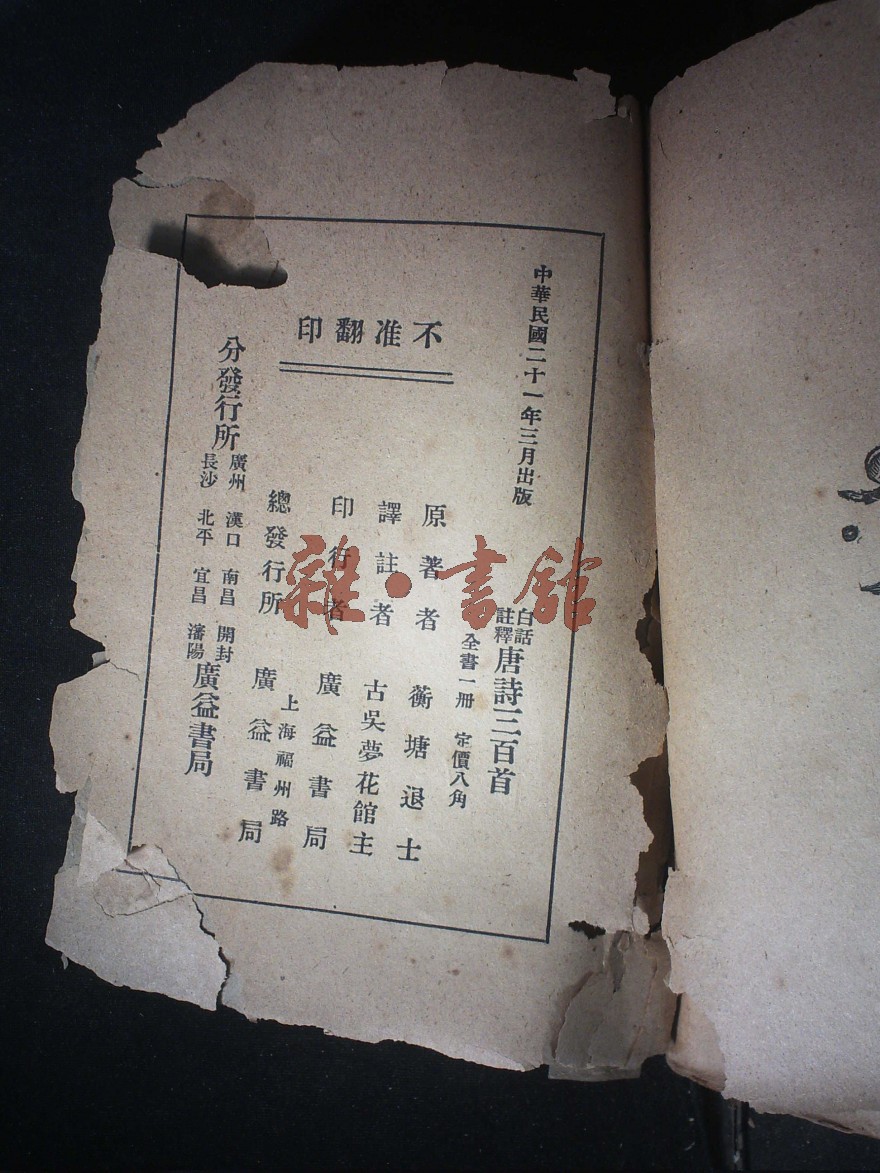 中華民國二十一年三月出版
白話
註釋
唐詩三百首
全書一冊 定價八角
不准翻印
原著者 蘅塘退士
譯註者 古吳夢花館主
印行者 廣益書局
總發行所 上海福州路 廣益書局
分發行所
廣州 漢口 南昌 開封
長沙 北平 宜昌 瀋陽
廣益書局
雜·書館